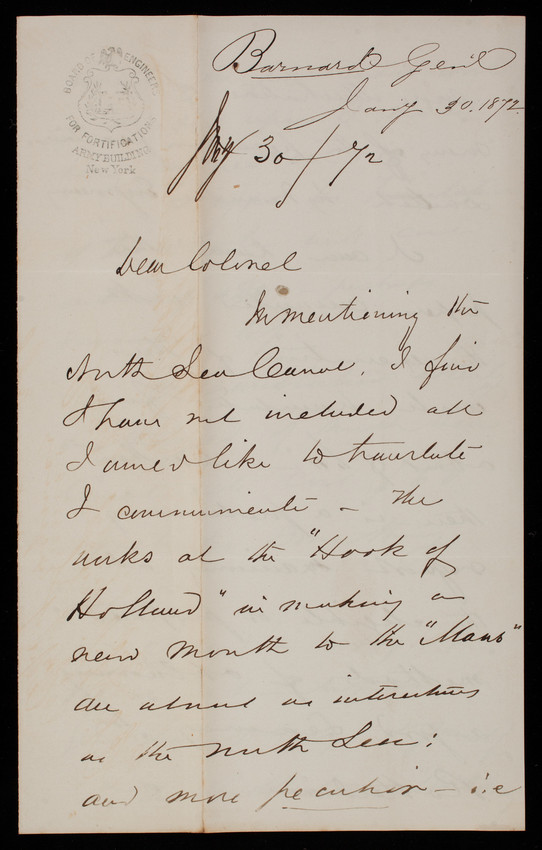 BOARD OF ENGINEERS
FOR FORTIFICATIONS
ARMY BUILDING
New York
Barnard Gen'l
Jany 30. 1872.
Jany 30/72
Dear Colonel
In mentioning the
North Sea Canal, I find
I have not included all
I would like to translate
& communicate – The
works at the "Hook of
Holland" in making a
new mouth to the "Maas"
are almost as interesting
as the North Sea:
and more peculiar – i.e